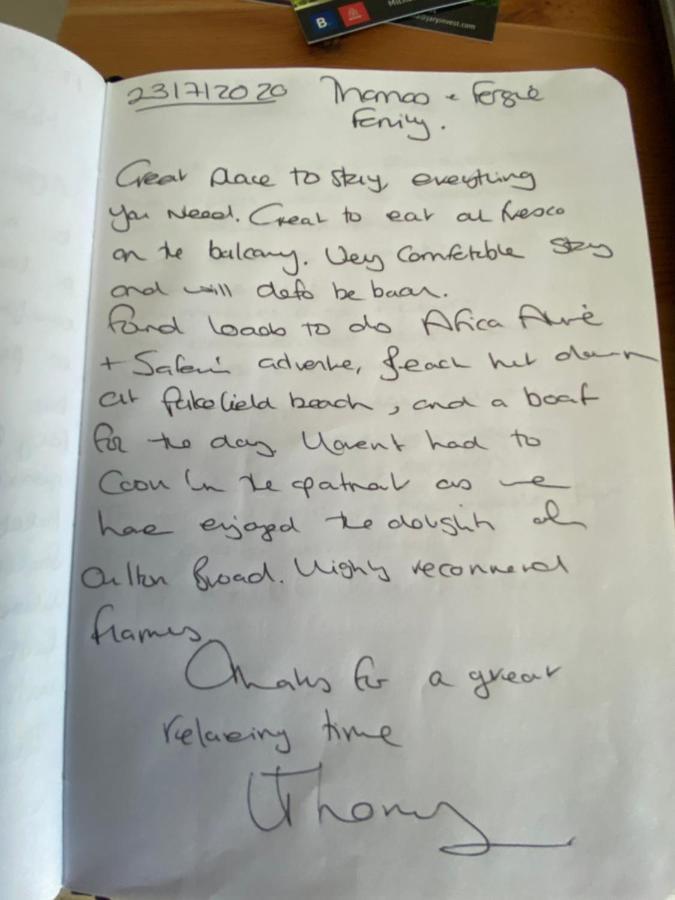 B.
@jaryinvest.com
23/7/2020 Thomas + Fergie
Family.
Great place to stay, everything
you need. Great to eat al fresco
on the balcony. Very comfortable stay
and will defo be back.
Found loads to do Africa Alive
+ Safari adventure, beach hut down
at Pakefield beach, and a boat
for the day. Havent had to
cook in the apartment as we
have enjoyed the delights of
Oulton Broad. Highly recommend
Flames.
Thanks for a great
relaxing time